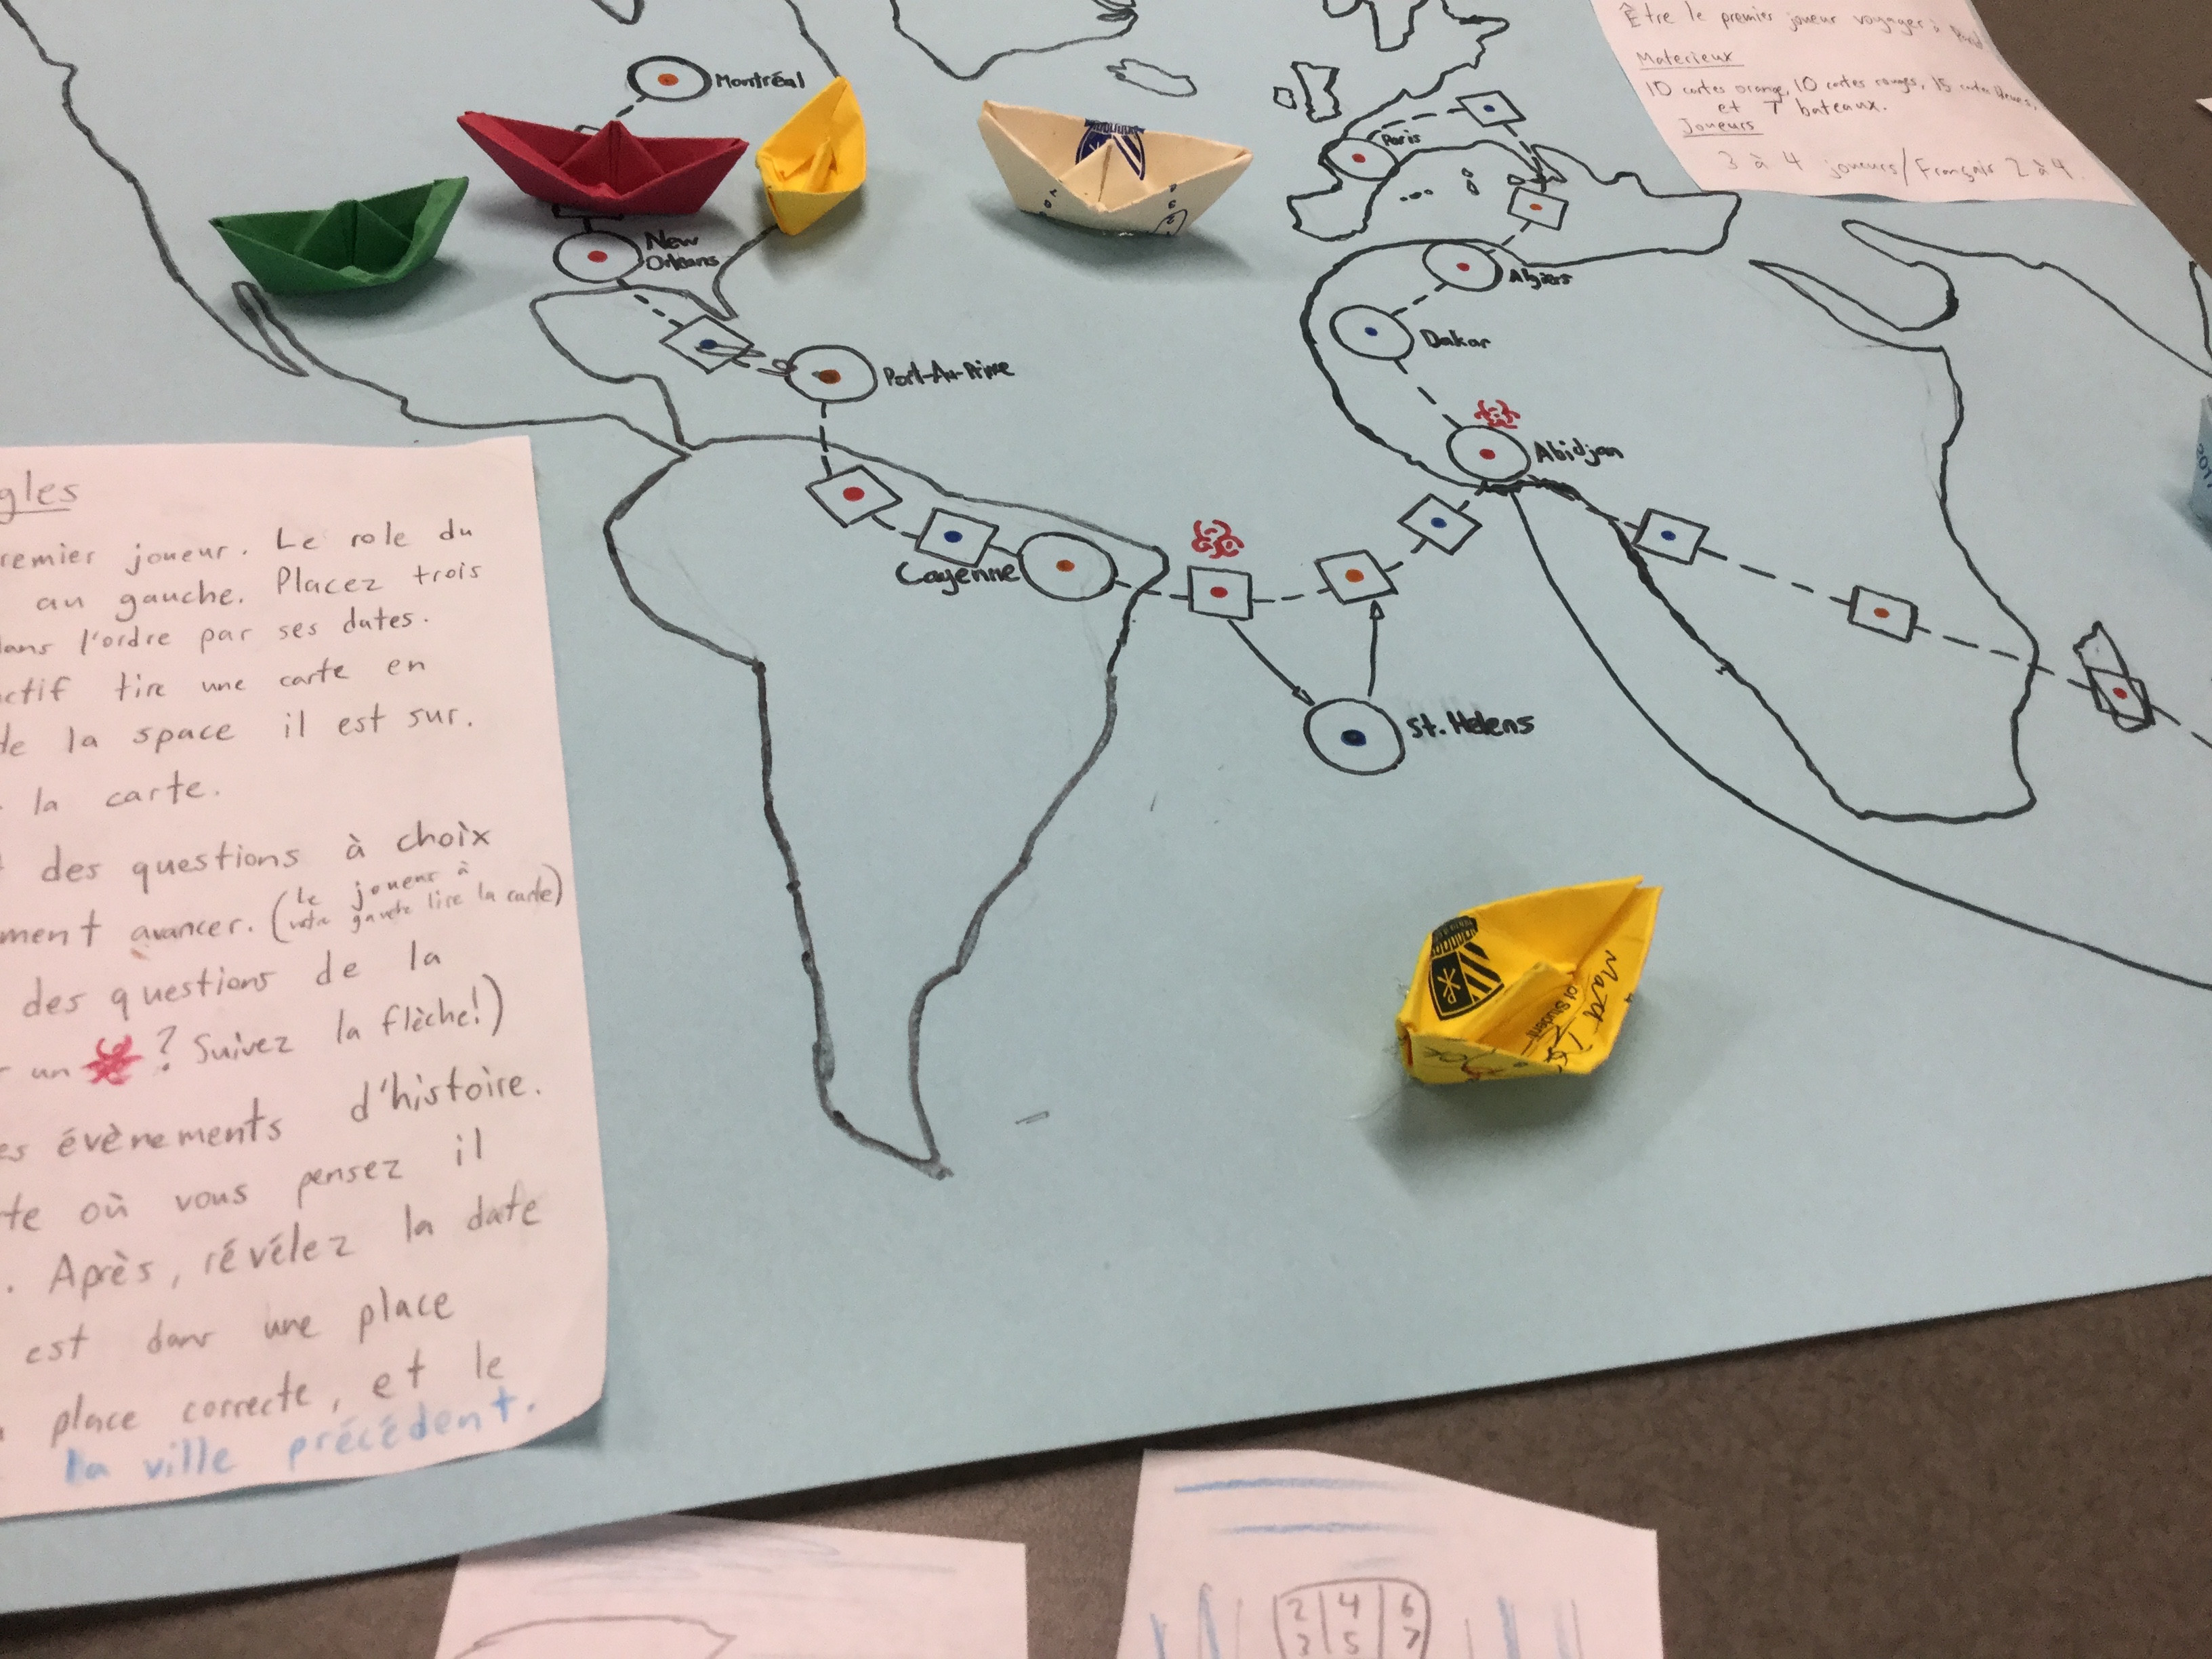 Être le premier joueur voyager à
Materieux
10 cartes orange, 10 cartes rouges, 15 cartes
et 7 bateaux.
Joueurs
3 à 4 joueurs/Français 2 à 4.
Montréal
New
Orleans
Port-Au-Prince
Cayenne
St. Helens
Paris
Algiers
Dakar
Abidjan
gles
remier joueur. Le role du
au gauche. Placez trois
dans l'ordre par ses dates.
actif tire une carte en
de la space il est sur.
la carte.
des questions à choix
ment avancer. (Le joueur à
votre gauche lire la carte)
des questions de la
un ? Suivez la flèche!)
es évènements d'histoire.
te où vous pensez il
. Après, révélez la date
est dans une place
place correcte, et le
la ville précédent.
ol Student
2 4 6
3 5 7
201